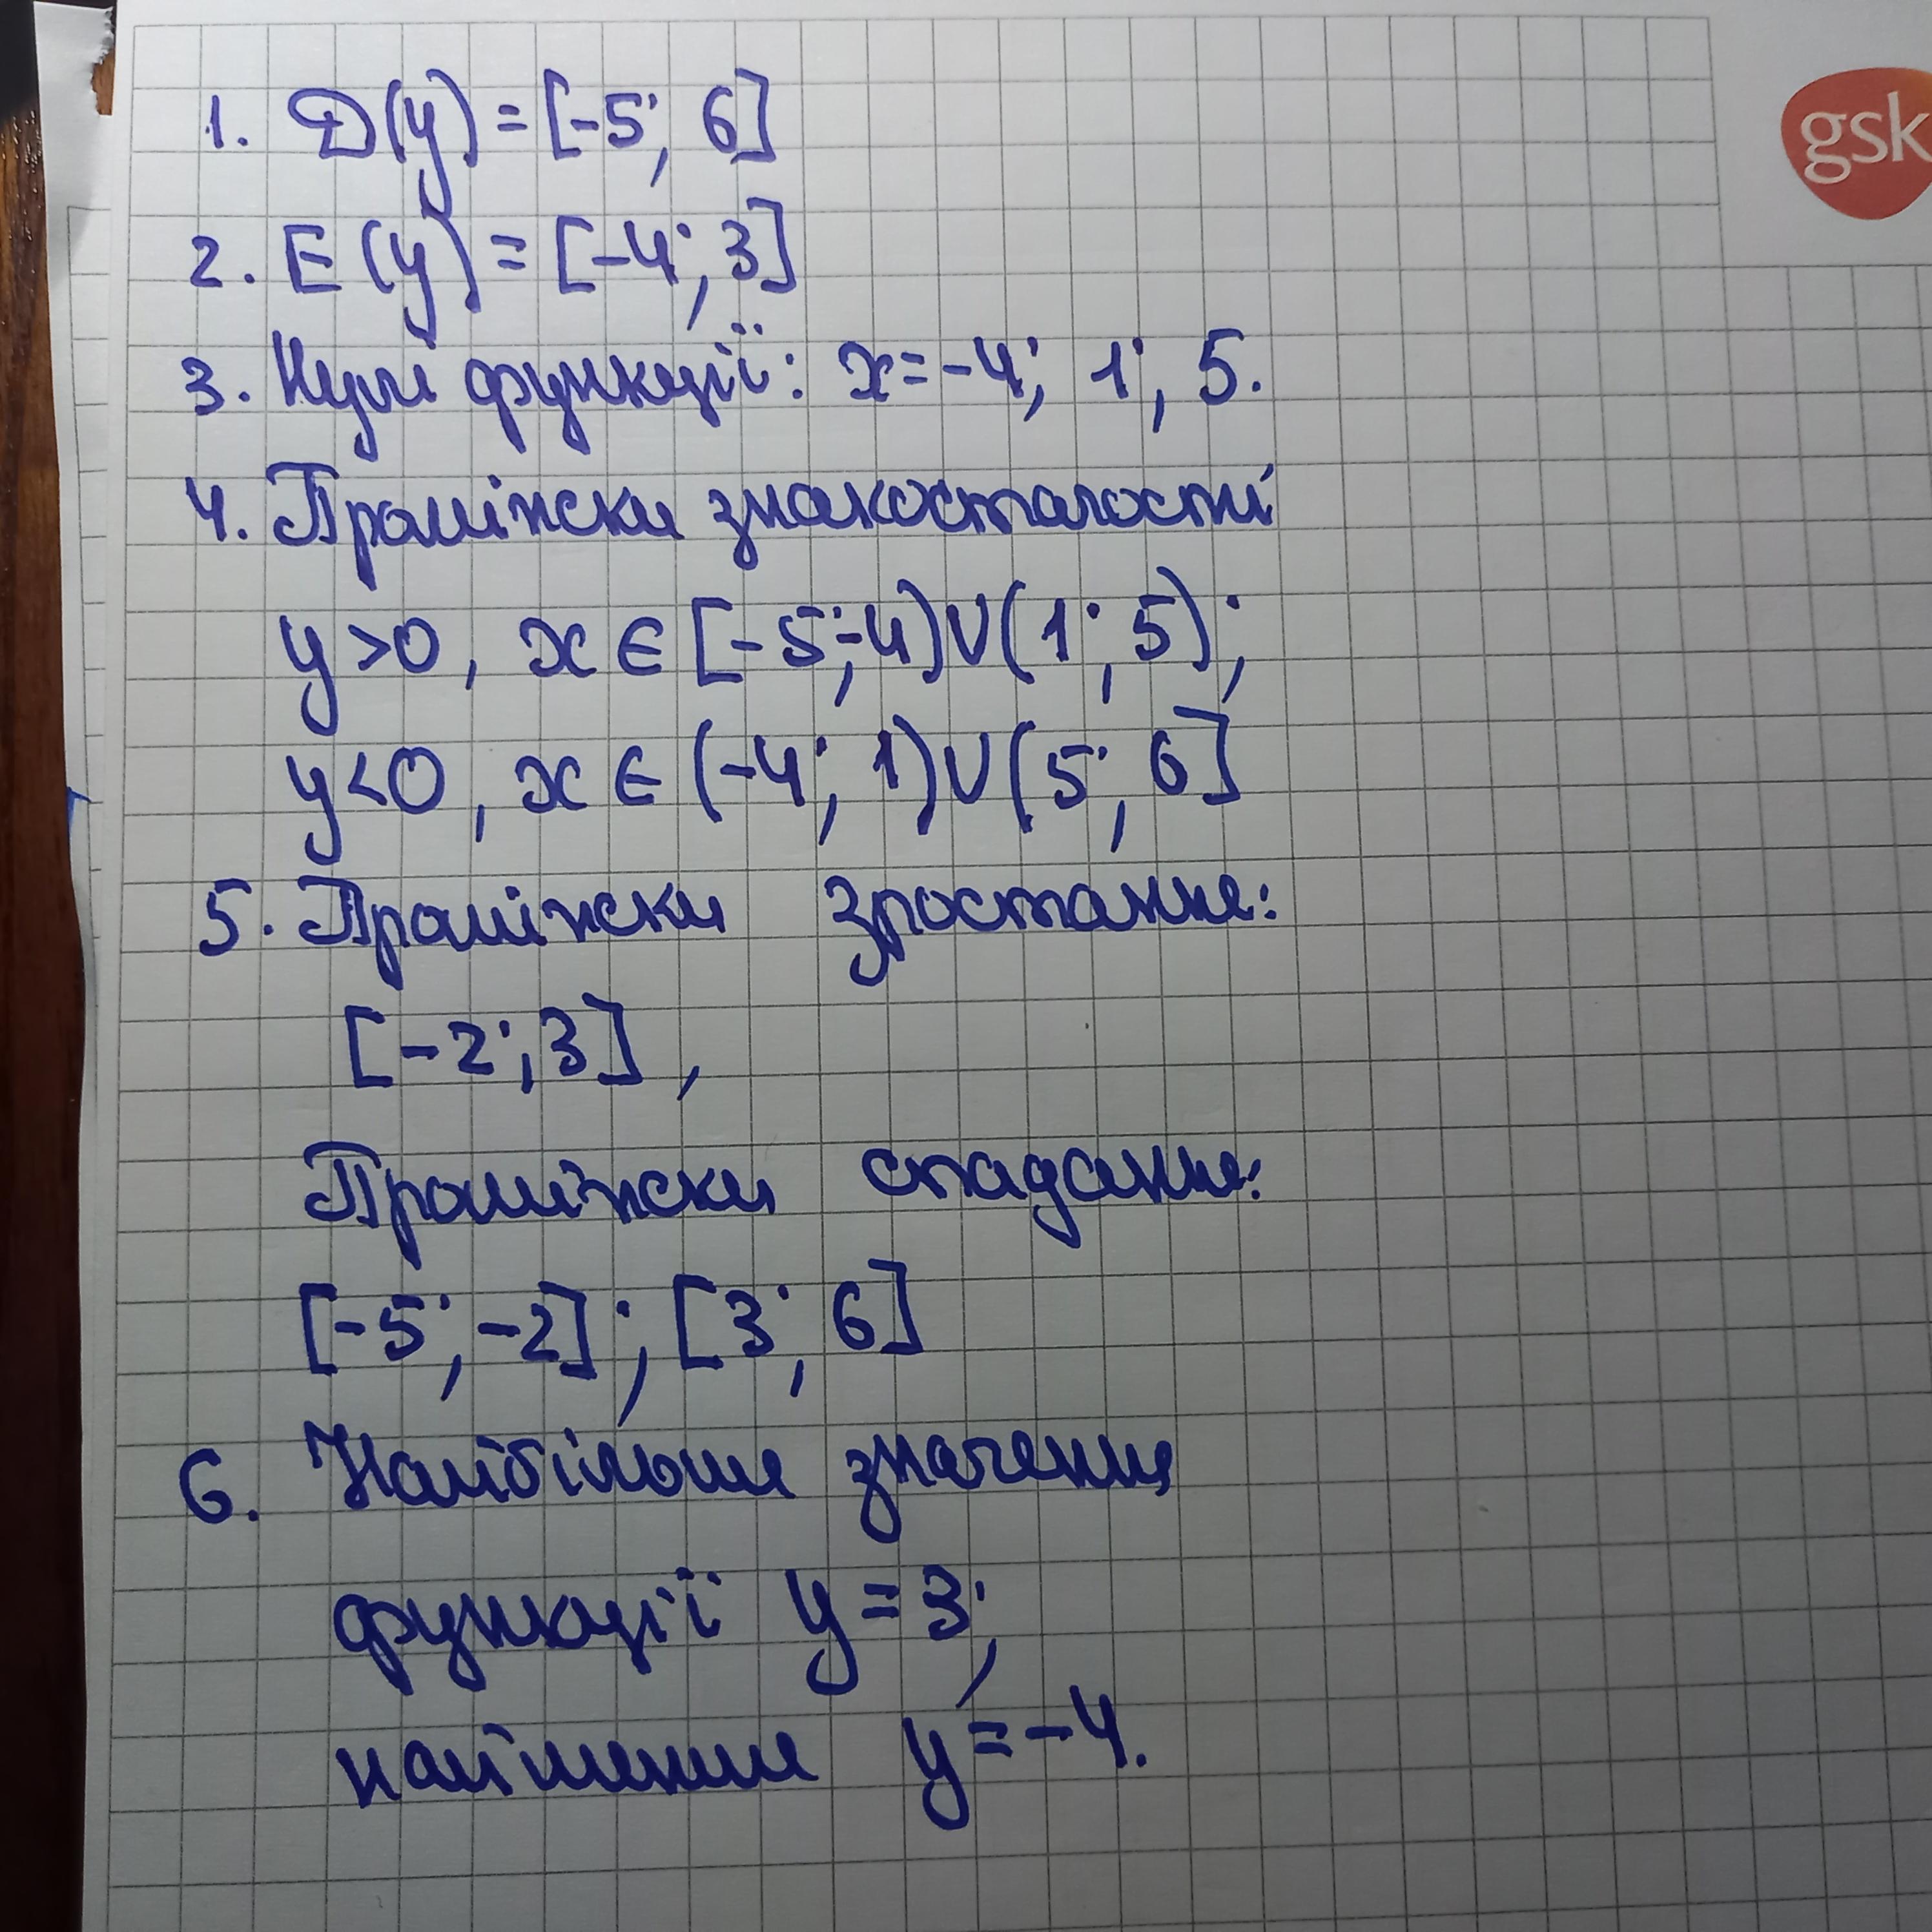 gsk
1. D(y) = [-5; 6]
2. E(y) = [-4; 3]
3. Нулі функції: x = -4; 1; 5.
4. Проміжски знакосталості
y > 0, x ∈ [-5; -4) ∪ (1; 5);
y < 0, x ∈ (-4; 1) ∪ (5; 6]
5. Проміжски зростання:
[-2; 3],
Проміжски спадання:
[-5; -2]; [3; 6]
6. Найбільше значення
функції y = 3;
найменше y = -4.